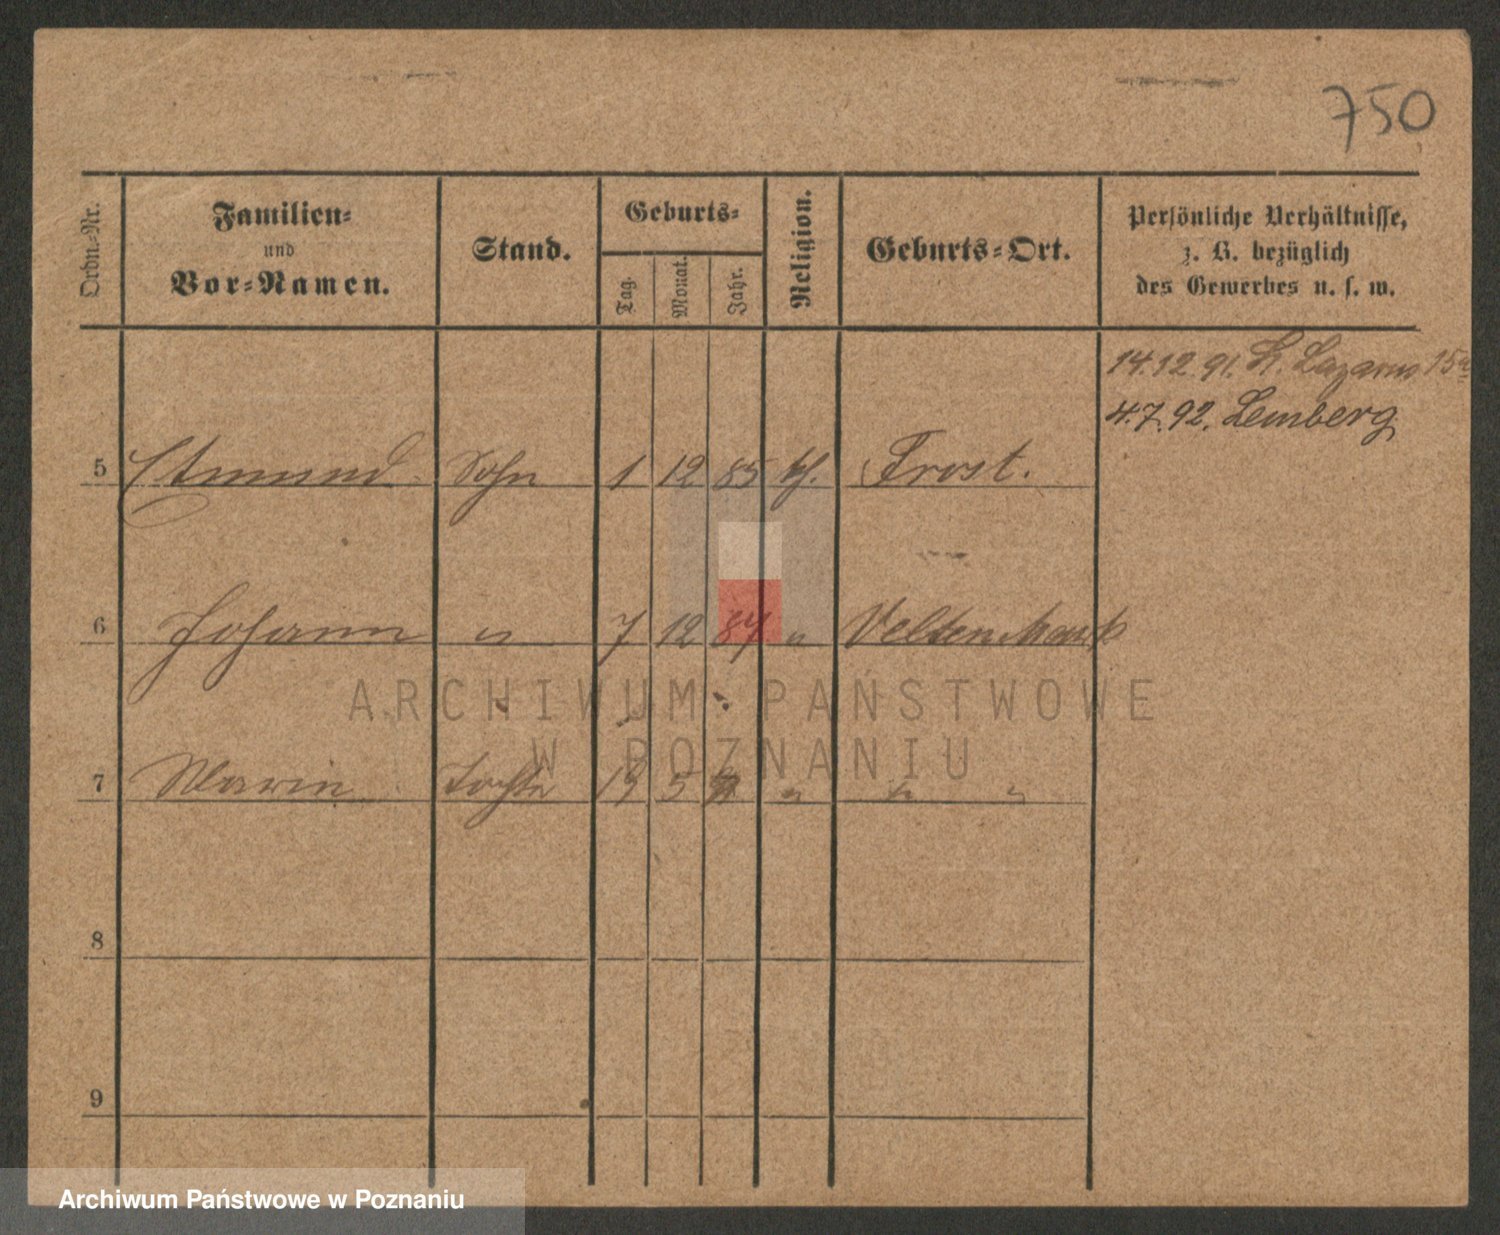 750
Ordn.-Nr.
Familien-
und
Vor-Namen.
Stand.
Geburts-
Tag.
Monat.
Jahr.
Religion.
Geburts-Ort.
Persönliche Verhältnisse,
z. B. bezüglich
des Gewerbes u. s. w.
14.12.91. St. Lazarus 15
4.7.92. Lemberg
5 Edmund Sohn 1 12 85 kh. Frost.
6 Johann " 7 12 87 "
ARCHIWUM PAŃSTWOWE
W POZNANIU
7 Tochter 19 5 " " "
8
9
Archiwum Państwowe w Poznaniu